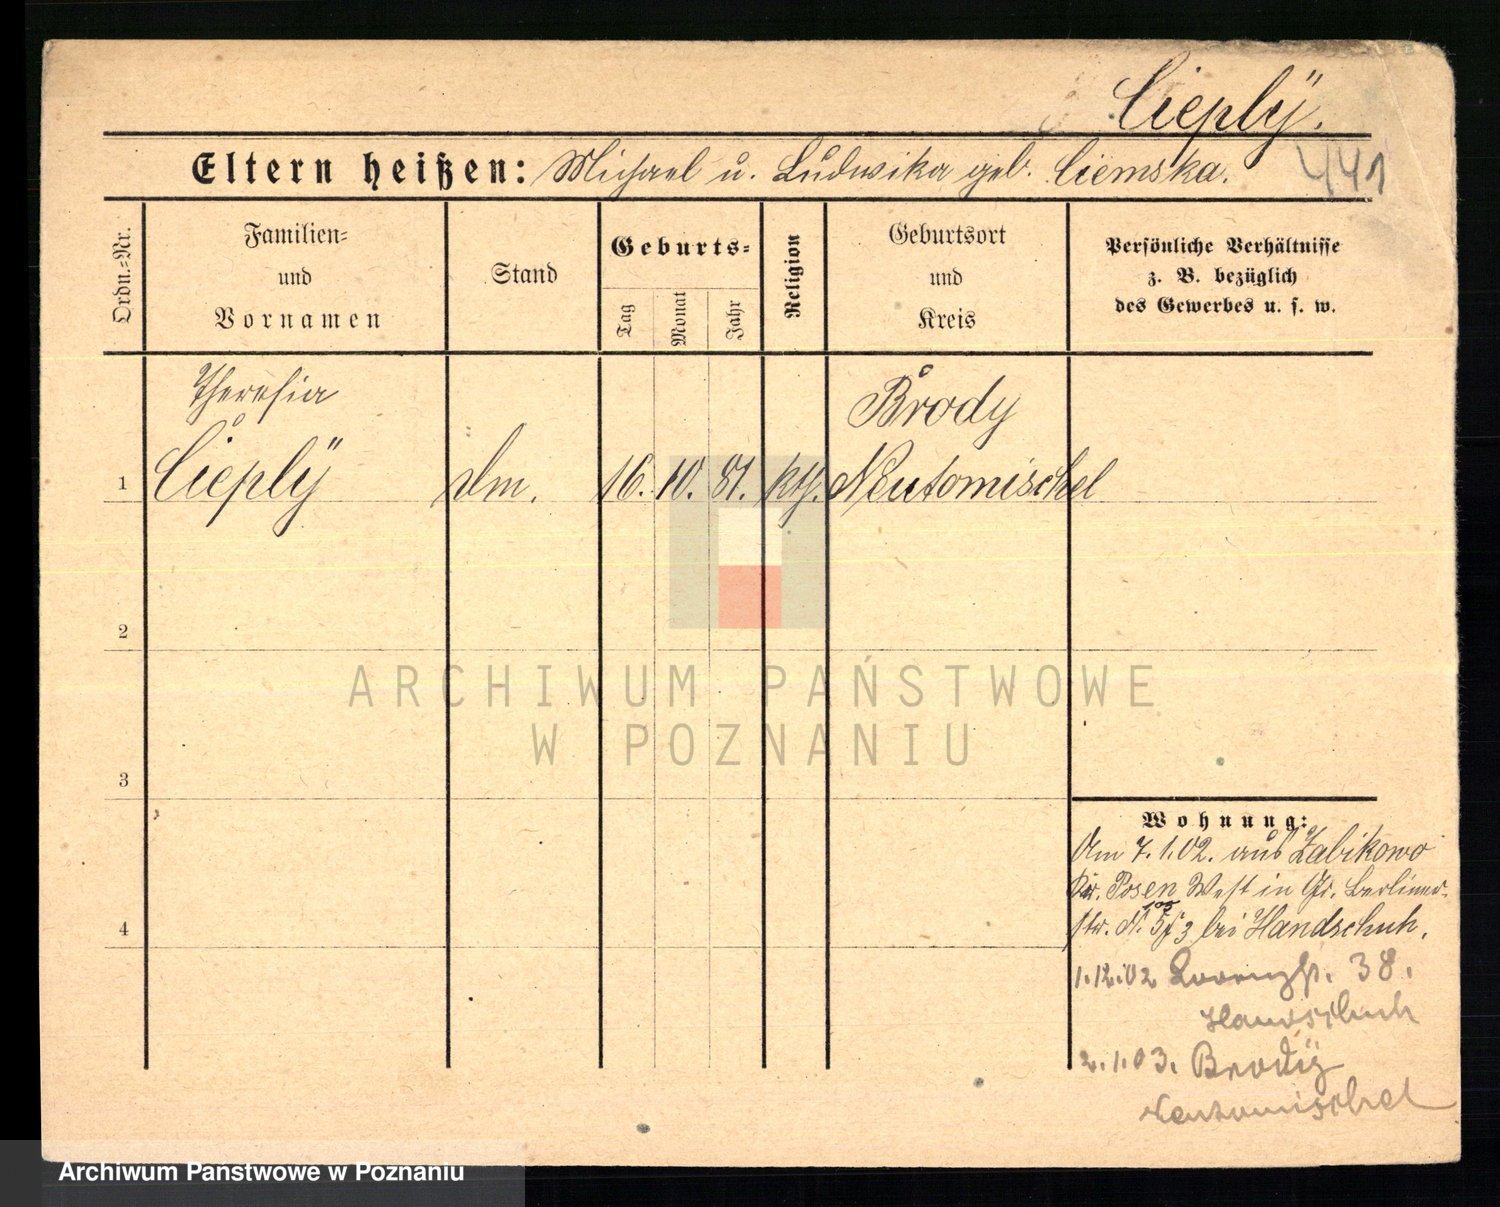 Cieplÿ.
Eltern heißen: Michael u. Ludwika geb. Ciemska.
441
Ordn.-Nr.
Familien-
und
Vornamen
Stand
Geburts-
Tag
Monat
Jahr
Religion
Geburtsort
und
Kreis
Persönliche Verhältnisse
z. B. bezüglich
des Gewerbes u. s. w.
Theresia
Brody
1 Cieplÿ Dm. 16. 10. 81. kth. Neutomischel
2
ARCHIWUM PAŃSTWOWE
W POZNANIU
3
Wohnung:
Am 7.1.02. aus Zabikowo
Kr. Posen West in Gr. Berliner-
4
str. N. bei Handschuh.
1.12.02 38.
Handschuh
2.1.03. Brody
Neutomischel
Archiwum Państwowe w Poznaniu